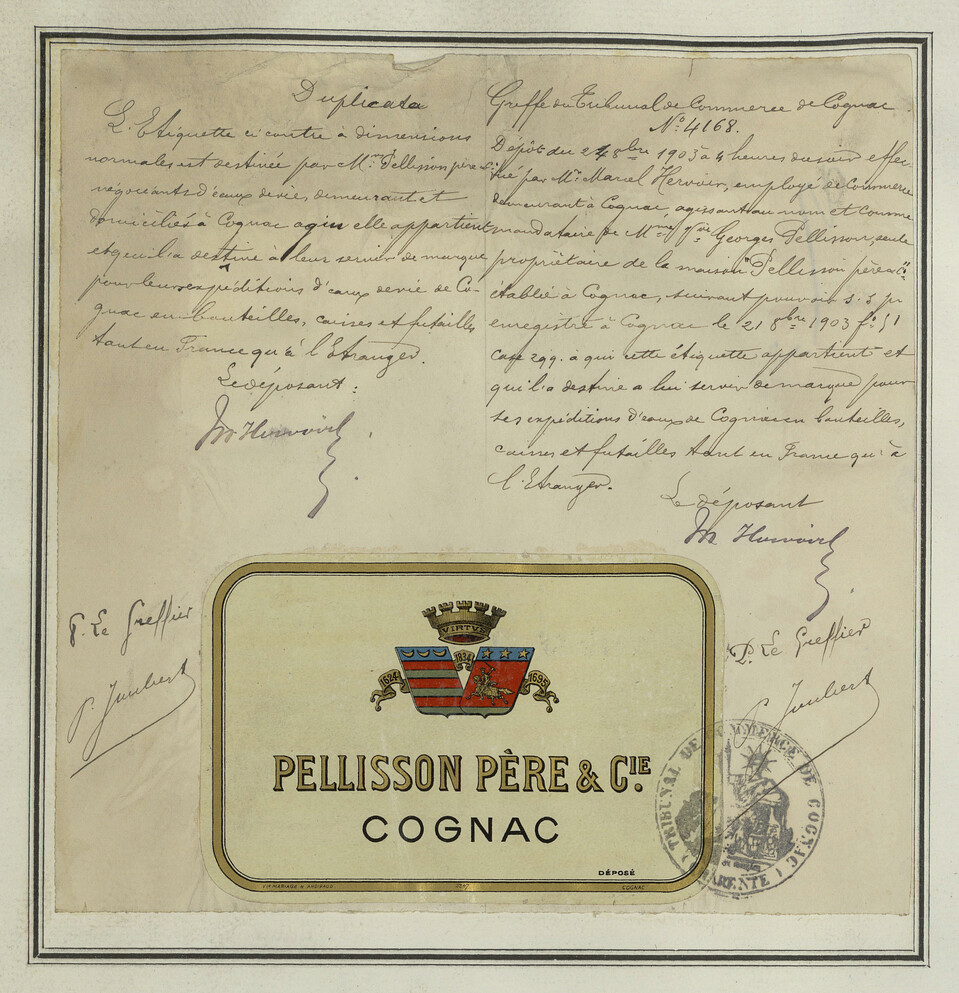 Duplicata
L'Etiquette ci contre à dimensions
normales est destinée par Mrs Pellisson père & Cie
négociants d'eaux de vie, demeurant et
domiciliés à Cognac elle appartient
et qu'il a destiné à leur servir de marque
pour leurs expéditions d'eaux de vie de Co-
gnac en bouteilles, caisses et futailles
tant en France qu'à l'Etranger.
Le déposant :
M. Hervoir
Greffe du Tribunal de Commerce de Cognac
No. 4168.
Dépôt du 24 8bre 1903 à 4 heures du soir effec-
tué par Mr. Marcel Hervoir, employé de Commerce
demeurant à Cognac, agissant au nom et comme
mandataire de Mme Georges Pellisson, seule
propriétaire de la maison "Pellisson père & Cie
établie à Cognac, suivant pouvoir s. s. p.
enregistré à Cognac le 21 8bre 1903 fo. 51
Case 299. à qui cette étiquette appartient et
qu'il a destiné à lui servir de marque pour
ses expéditions d'eaux de Cognac en bouteilles,
caisses et futailles tant en France qu'à
l'Etranger.
Le déposant
M. Hervoir
P. Le Greffier
P. Joubert
P. Le Greffier
P. Joubert
VIRTVS
1624
1834
1695
PELLISSON PÈRE & CIE.
COGNAC
DÉPOSÉ
COGNAC
TRIBUNAL DE COMMERCE DE COGNAC
(CHARENTE)